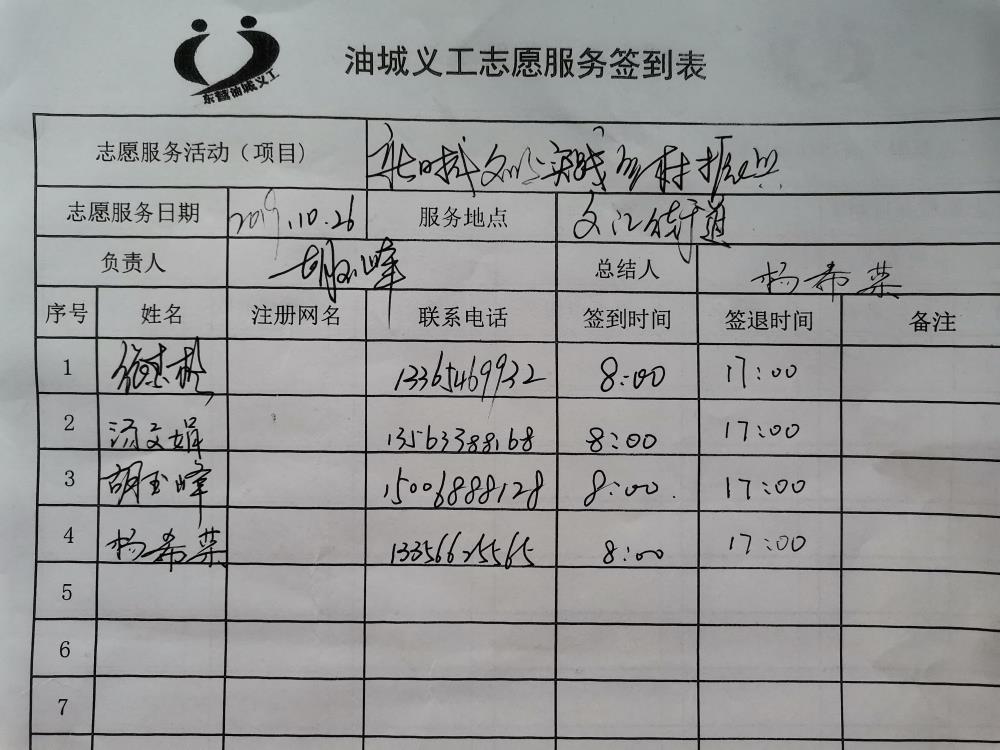 东营油城义工
油城义工志愿服务签到表
志愿服务活动（项目） 新时代文明实践乡村振兴
志愿服务日期 2019.10.26 服务地点 文汇街道
负责人 胡玉峰 总结人 杨希荣
序号 姓名 注册网名 联系电话 签到时间 签退时间 备注
1 13365469932 8:00 17:00
2 汤文娟 13563388168 8:00 17:00
3 胡玉峰 15006888128 8:00 17:00
4 杨希荣 13356625565 8:00 17:00
5
6
7